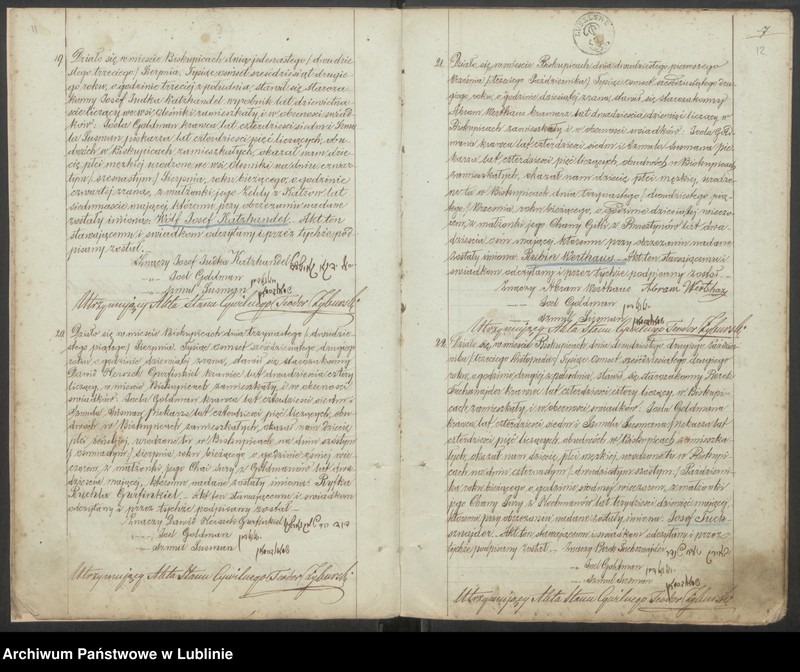 11
19 Działo się w mieście Biskupicach dnia jedenastego / dwudzie-
stego trzeciego / Sierpnia, Tysiąc ośmset sześćdziesiąt drugie-
go roku, o godzinie trzeciej z południa, stawił się Starozа-
konny Josef Judka Katzhandel wyrobnik lat
liczący we wsi zamieszkały, i w obecności świad-
ków: Josla Goldman krawca lat czterdzieści siedm i Szmu-
la Susman piekarza lat czterdzieści pięć liczących, obu-
dwóch w Biskupicach zamieszkałych, okazał nam dzie-
cię płci męzkiej urodzone we wsi na dniu czwar-
tym / szesnastym / Sierpnia, roku bieżącego, o godzinie
czwartej zrana, z małżonki jego Zeldy z Katzów lat
siedmnaście mającej, któremu przy obrzezaniu nadane
zostały imiona: Wolf Josef Katzhandel. Akt ten
stawającemu i świadkom odczytany i przez tychże pod-
pisany został.
Znaczy Josef Judka Katzhandel
— „ — Josl Goldman
— „ — Szmul Susmyn
Utrzymujący Akta Stanu Cywilnego Teodor
20 Działo się w mieście Biskupicach dnia trzynastego / dwudzie-
stego piątego / Sierpnia, Tysiąc ośmset sześćdziesiątego drugiego
roku, o godzinie dziewiątej zrana, stawił się starozakonny
Dawid Herszek Gurfinkiel krawiec lat dwadzieścia cztery
liczący, w mieście Biskupicach zamieszkały, i w obecności
świadków: Josla Goldman krawca lat czterdzieści siedm i
Szmula Susman, piekarza lat czterdzieści pięć liczących, obu-
dwóch w Biskupicach zamieszkałych, okazał nam dziecię
płci żeńskiej, urodzone tu w Biskupicach na dniu szóstym
/ ośmnastym / sierpnia, roku bieżącego, o godzinie ósmej wie-
czorem, z małżonki jego Chai Sury z Goldmanów lat dwa-
dzieścia mającej, któremu nadane zostały imiona: Ryfka
Ruchla Gurfinkiel. Akt ten stawającemu i świadkom
odczytany i przez tychże podpisany został —
Znaczy Dawid Herszek Gurfinkiel
— „ — Josl Goldman
— „ — Szmul Susman
Utrzymujący Akta Stanu Cywilnego Teodor
7
12
21 Działo się w mieście Biskupicach dnia dwudziestego pierwszego
Września / trzeciego Października / Tysiąc ośmset sześćdziesiątego dru-
giego roku, o godzinie dziesiątej zrana, stawił się Starozakonny
Abram Werthaus kramarz lat dwadzieścia dziewięć liczący, w
Biskupicach zamieszkały i w obecności świadków: Josla Gold-
mana krawca lat czterdzieści siedm i Szmula Susmana pie-
karza lat czterdzieści pięć liczących, obudwóch w Biskupicach
zamieszkałych, okazał nam dziecię płci męzkiej, urodzo-
ne tu w Biskupicach dnia trzynastego / dwudziestego pią-
tego / Września roku bieżącego, o godzinie dziesiątej wieczo-
rem, z małżonki jego Chany Gitli z lat dwa-
dzieścia mającej, któremu przy obrzezaniu nadane
zostały imiona: Rubin Werthaus. Akt ten stawającemu i
świadkom odczytany i przez tychże podpisany został —
Znaczy Abram Werthaus Abram Wertchaz
— „ — Josl Goldman
— „ — Szmul Susman
Utrzymujący Akta Stanu Cywilnego Teodor
22 Działo się w mieście Biskupicach dnia dwudziestego drugiego Paździer-
nika / trzeciego Listopada / Tysiąc ośmset sześćdziesiątego drugiego
roku, o godzinie drugiej z południa, stawił się starozakonny Berek
krawiec lat czterdzieści cztery liczący, w Biskupi-
cach zamieszkały, i w obecności świadków: Josla Goldmana
krawca lat czterdzieści siedm i Szmula Susmana piekarza lat
czterdzieści pięć liczących, obudwóch w Biskupicach zamieszka-
łych, okazał nam dziecię, płci męzkiej, urodzone tu w Biskupi-
cach na dniu czternastym / dwudziestym szóstym / Październi-
ka roku bieżącego, o godzinie siódmej wieczorem, z małżonki
jego Chany Sury z lat trzydzieści dziewięć mającej
któremu przy obrzezaniu nadane zostały imiona: Josef
Akt ten stawającemu i świadkom odczytany i przez
tychże podpisany został — Znaczy Berek
— „ — Josl Goldman
— „ — Szmul Susman
Utrzymujący Akta Stanu Cywilnego Teodor
Archiwum Państwowe w Lublinie